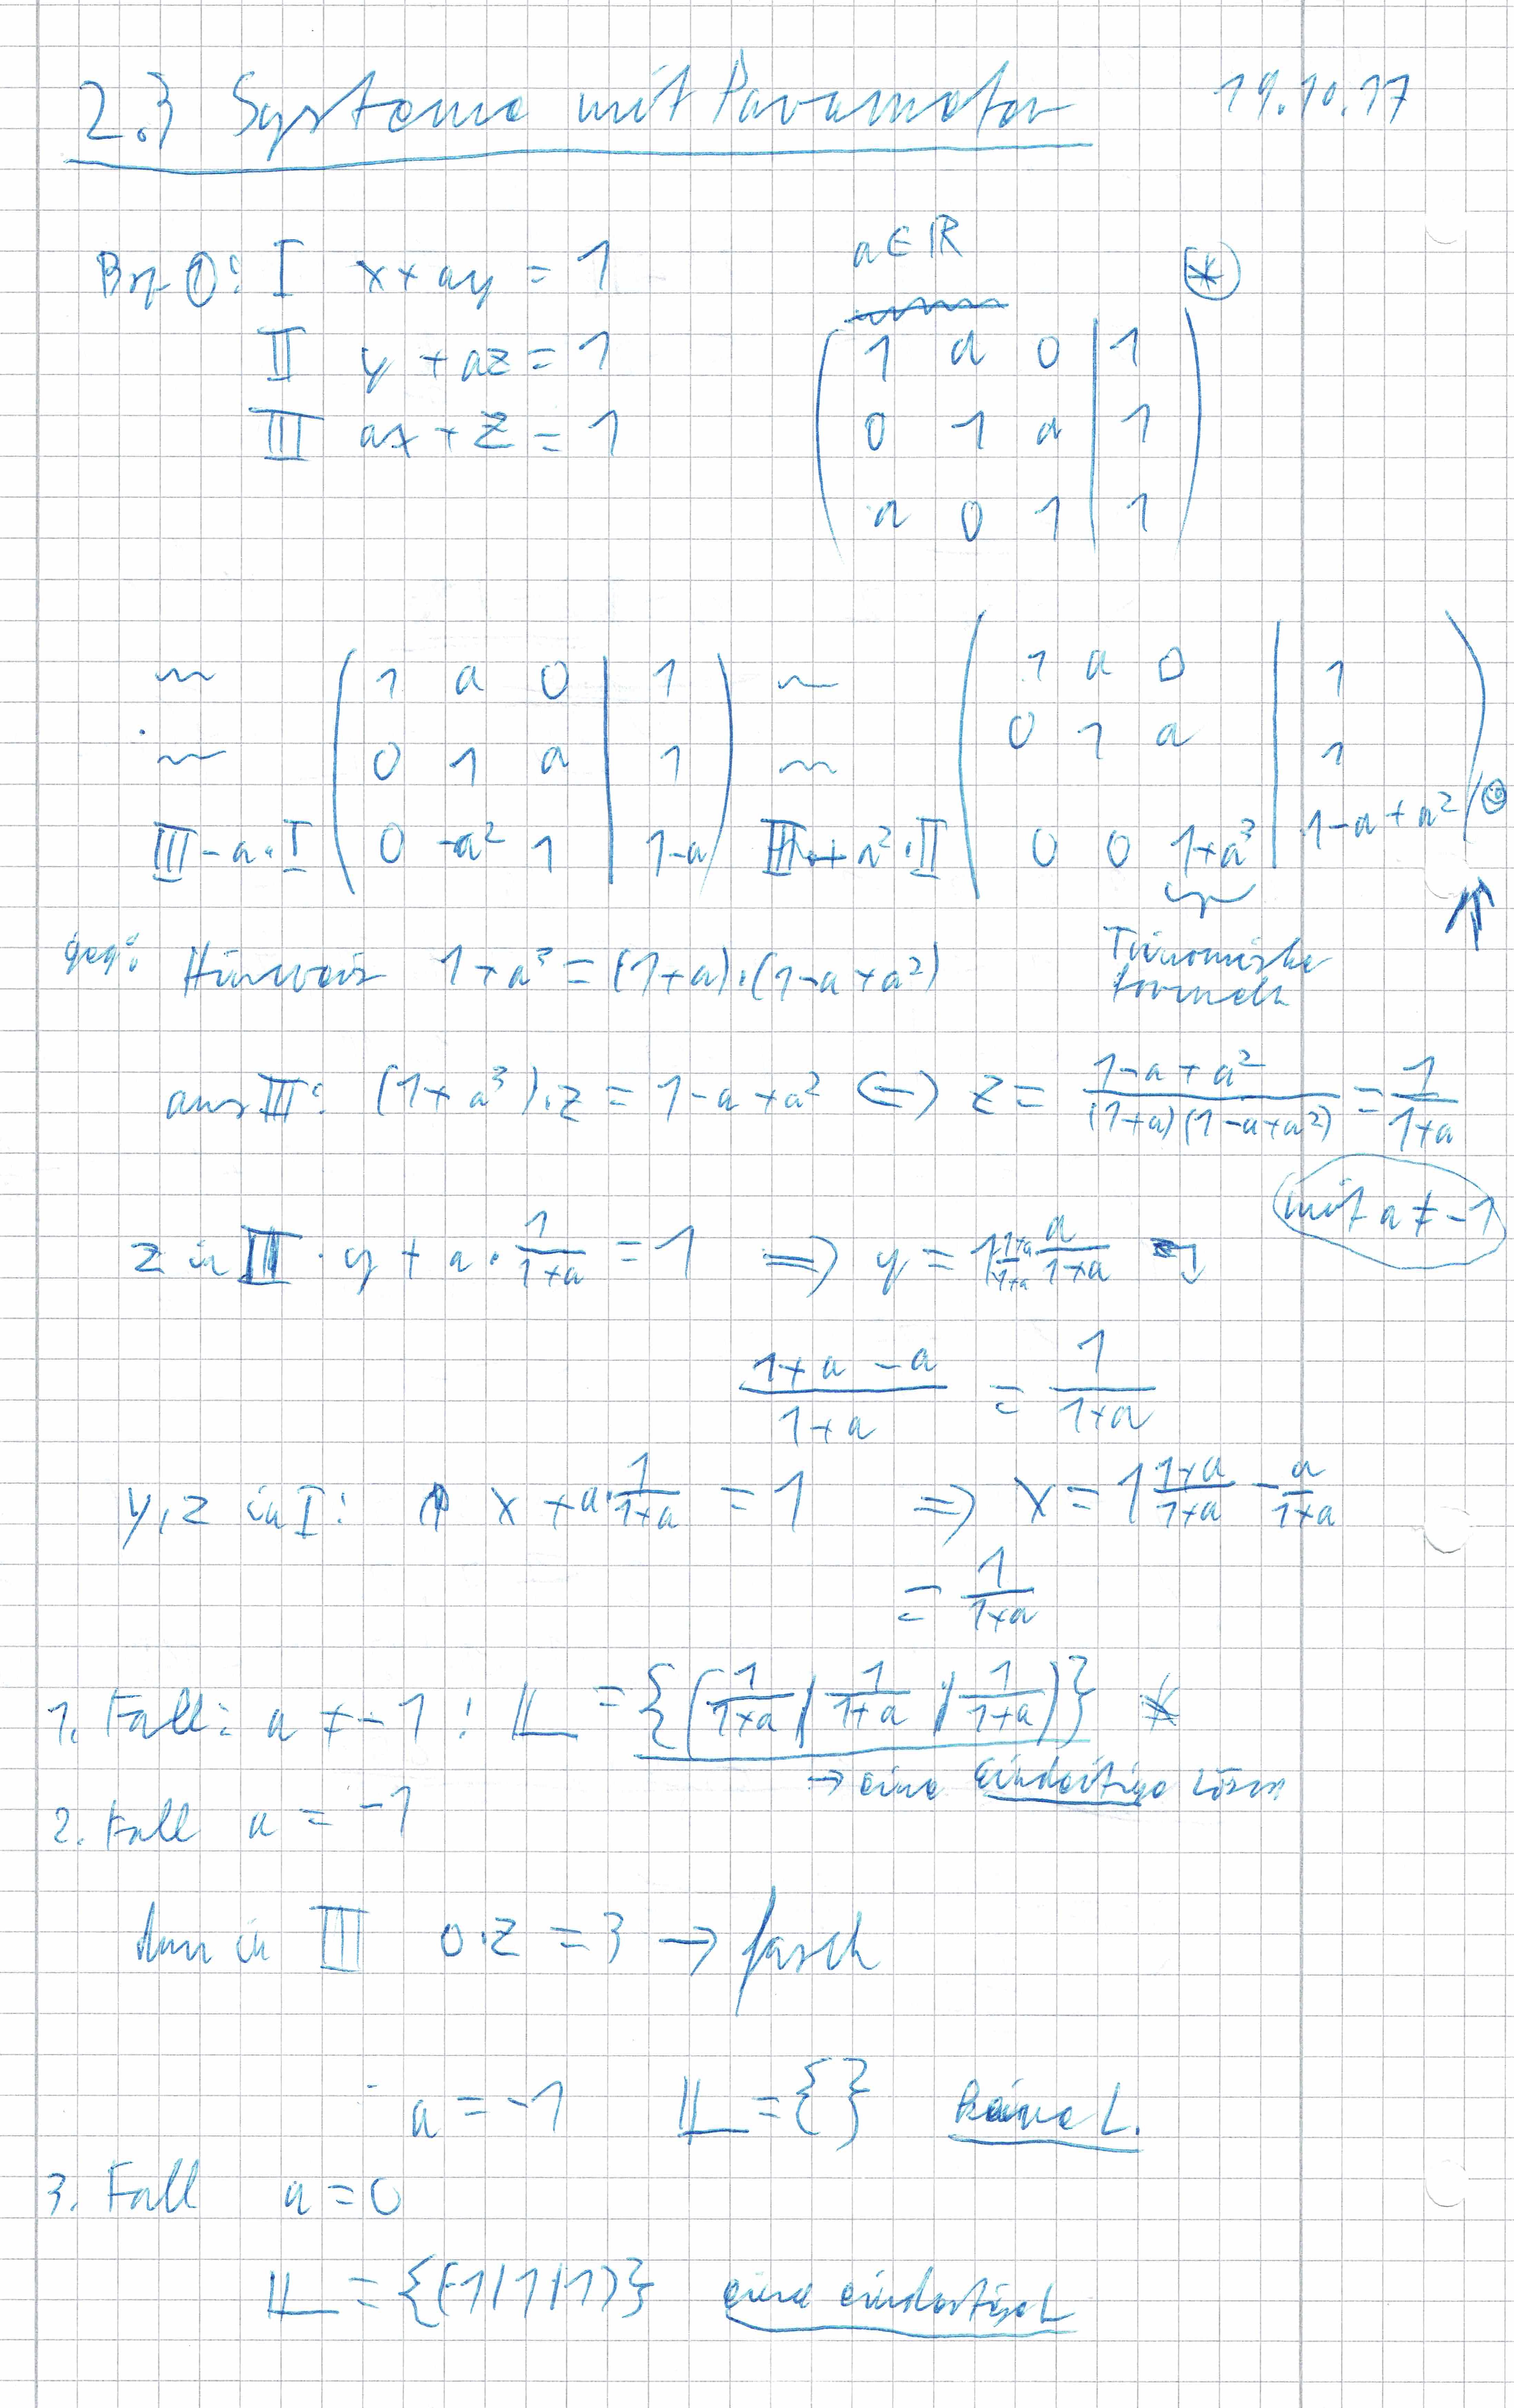 2.3 Systeme mit Parameter 19.10.17
Bsp ①: I x+ay = 1 a∈ℝ (*)
II y + az = 1
III ax + z = 1
( 1 a 0 | 1 )
( 0 1 a | 1 )
( a 0 1 | 1 )
~ ( 1 a 0 | 1 ) ~ ( 1 a 0 | 1 )
~ ( 0 1 a | 1 ) ~ ( 0 1 a | 1 )
III - a·I ( 0 -a² 1 | 1-a ) III + a²·II ( 0 0 1+a³ | 1-a+a² )
geg: Hinweis 1+a³ = (1+a)·(1-a+a²) Trinomische
Formeln
aus III: (1+a³)·z = 1-a+a² ⇔ z = (1-a+a²)/((1+a)(1-a+a²)) = 1/(1+a)
mit a ≠ -1
z in II y + a · 1/(1+a) = 1 ⇒ y = 1 (1+a)/(1+a) - a/(1+a)
(1+a-a)/(1+a) = 1/(1+a)
y, z in I: x + a · 1/(1+a) = 1 ⇒ x = 1 (1+a)/(1+a) - a/(1+a)
= 1/(1+a)
1. Fall: a ≠ -1: 𝕃 = {(1/(1+a) | 1/(1+a) | 1/(1+a))} *
→ eine eindeutige Lösung
2. Fall a = -1
dann in III 0·z = 3 → fasch
a = -1 𝕃 = {} keine L.
3. Fall a = 0
𝕃 = {(1|1|1)} eine eindeutige L